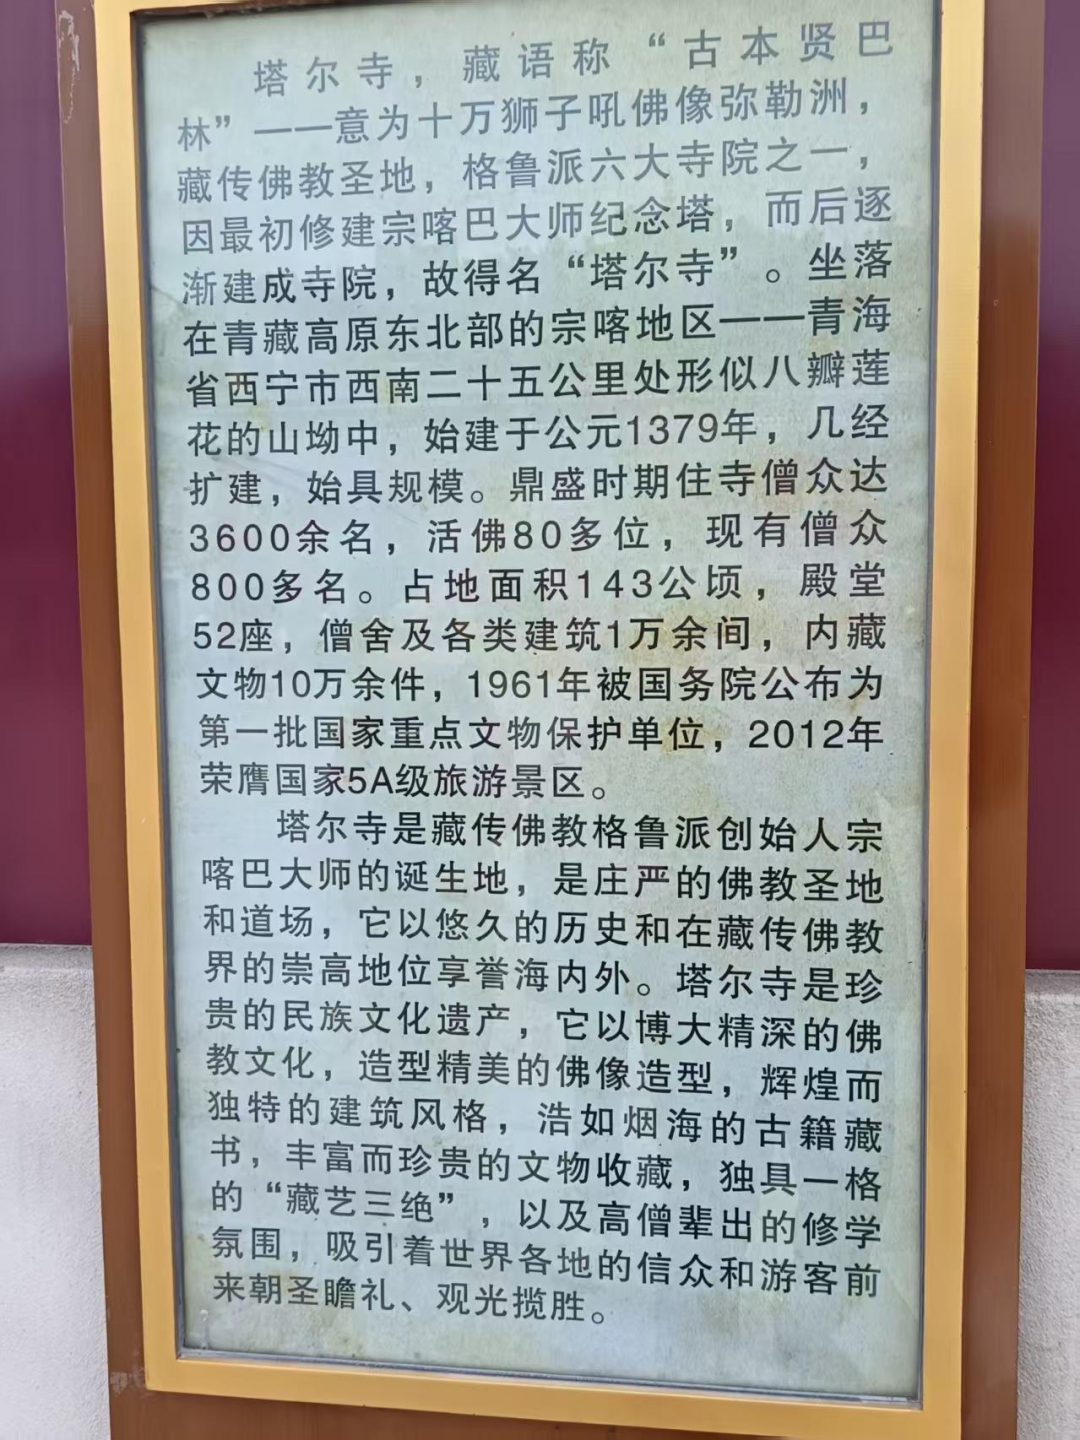 塔尔寺，藏语称“古本贤巴
林”——意为十万狮子吼佛像弥勒洲，
藏传佛教圣地，格鲁派六大寺院之一，
因最初修建宗喀巴大师纪念塔，而后逐
渐建成寺院，故得名“塔尔寺”。坐落
在青藏高原东北部的宗喀地区——青海
省西宁市西南二十五公里处形似八瓣莲
花的山坳中，始建于公元1379年，几经
扩建，始具规模。鼎盛时期住寺僧众达
3600余名，活佛80多位，现有僧众
800多名。占地面积143公顷，殿堂
52座，僧舍及各类建筑1万余间，内藏
文物10万余件，1961年被国务院公布为
第一批国家重点文物保护单位，2012年
荣膺国家5A级旅游景区。
塔尔寺是藏传佛教格鲁派创始人宗
喀巴大师的诞生地，是庄严的佛教圣地
和道场，它以悠久的历史和在藏传佛教
界的崇高地位享誉海内外。塔尔寺是珍
贵的民族文化遗产，它以博大精深的佛
教文化，造型精美的佛像造型，辉煌而
独特的建筑风格，浩如烟海的古籍藏
书，丰富而珍贵的文物收藏，独具一格
的“藏艺三绝”，以及高僧辈出的修学
氛围，吸引着世界各地的信众和游客前
来朝圣瞻礼、观光揽胜。